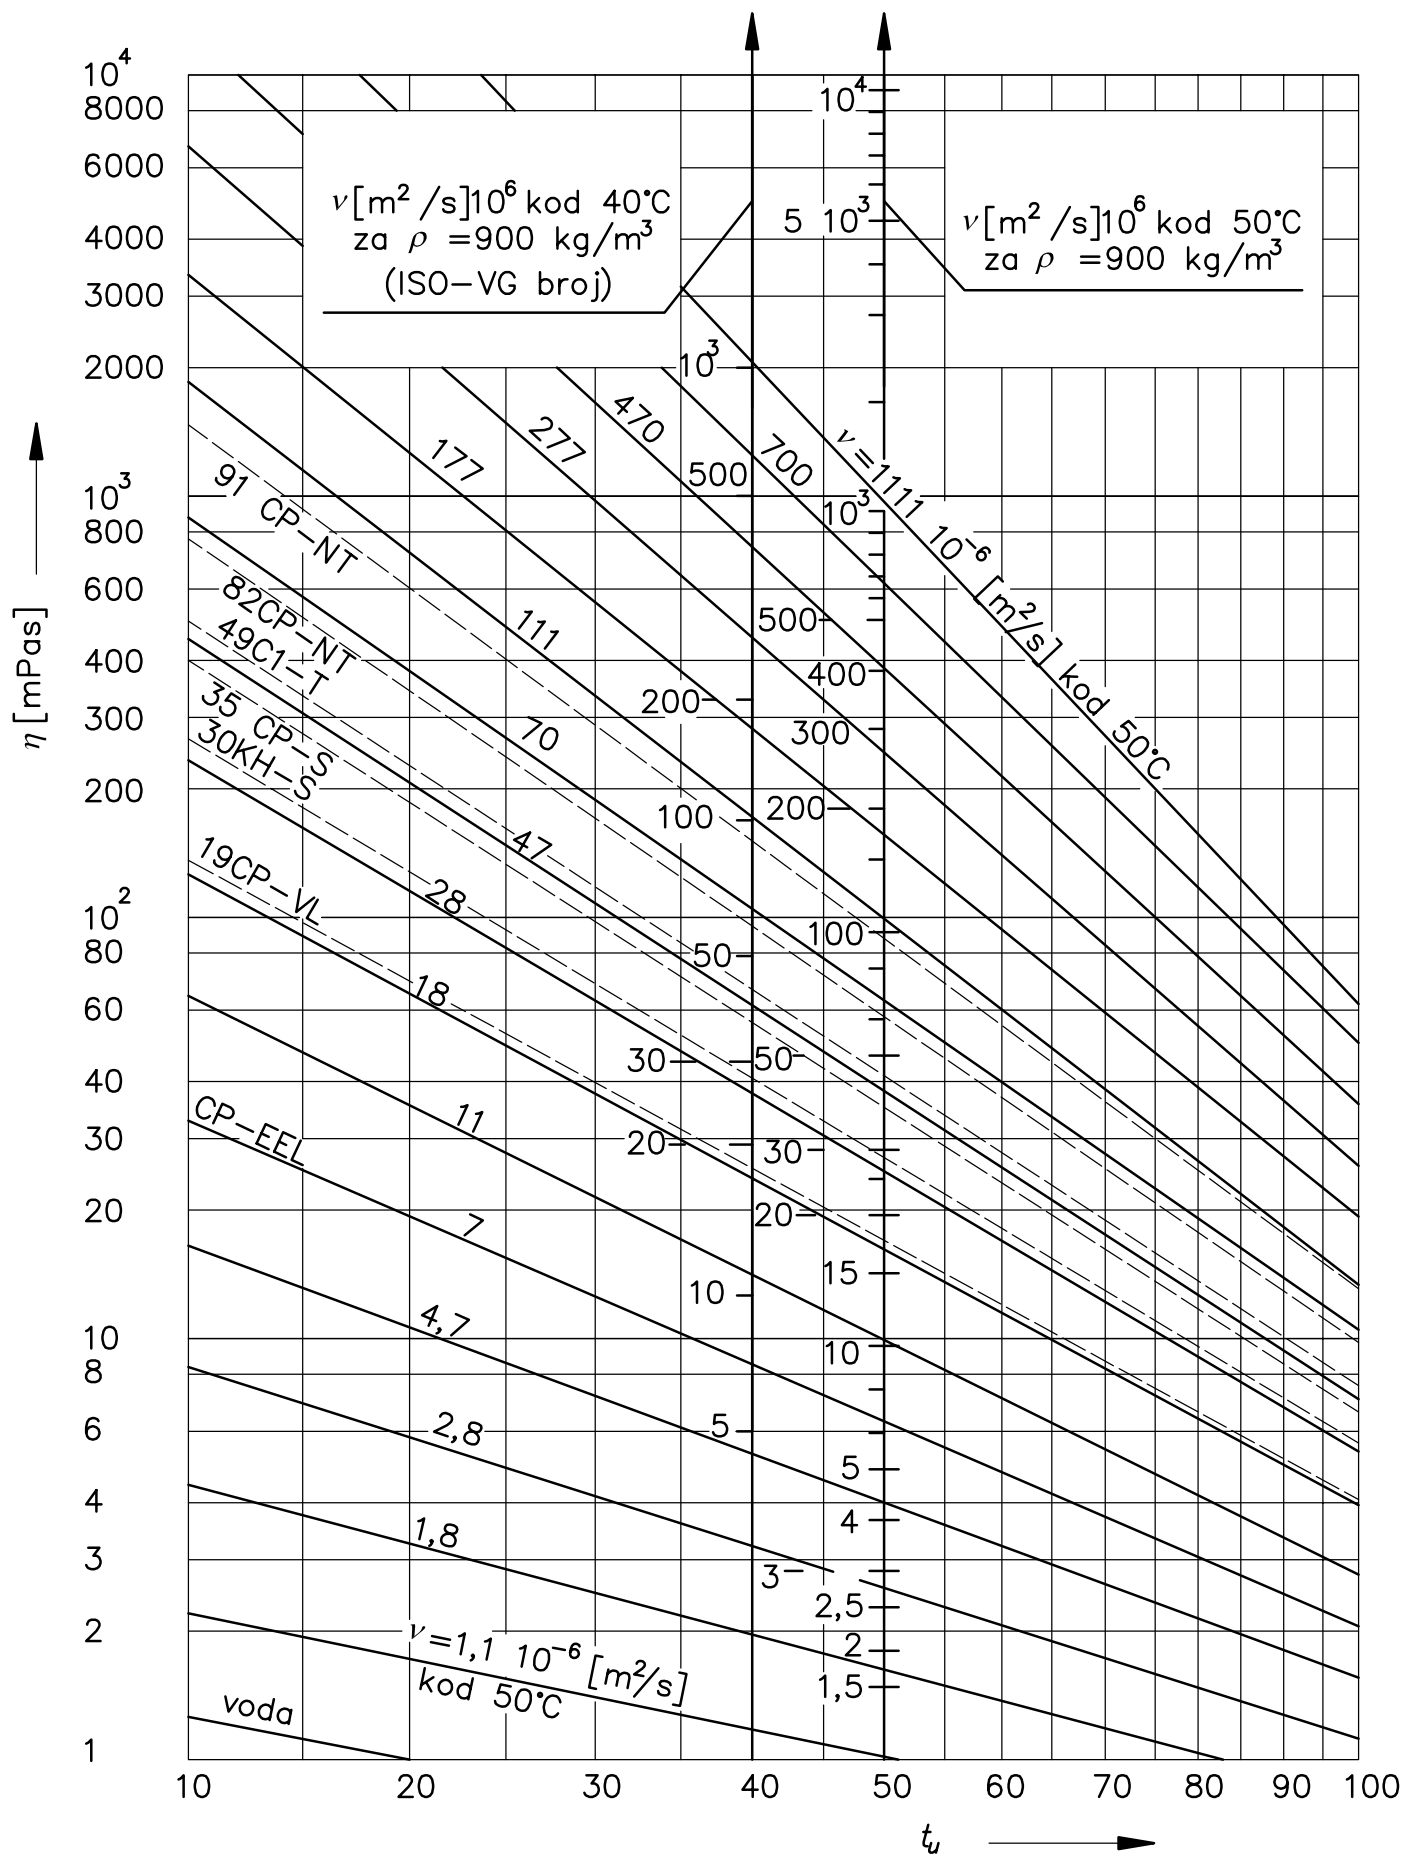 10⁴
8000
6000
4000
3000
2000
10³
800
600
400
300
200
10²
80
60
40
30
20
10
8
6
4
3
2
1
η [mPas]
ν[m² /s]10⁶ kod 40°C
za ρ =900 kg/m³
(ISO-VG broj)
ν[m² /s]10⁶ kod 50°C
za ρ =900 kg/m³
10³
500
200
100
50
30
20
10
5
10⁴
5 10³
10³
500
400
300
200
100
50
30
20
15
10
5
4
3
2,5
2
1,5
ν=1111 10⁻⁶ [m²/s] kod 50°C
700
470
277
177
111
70
47
28
18
11
7
4,7
2,8
1,8
ν=1,1 10⁻⁶ [m²/s]
kod 50°C
91 CP-NT
82CP-NT
49C1-T
35 CP-S
30KH-S
19CP-VL
CP-EEL
voda
10 20 30 40 50 60 70 80 90 100
tᵤ